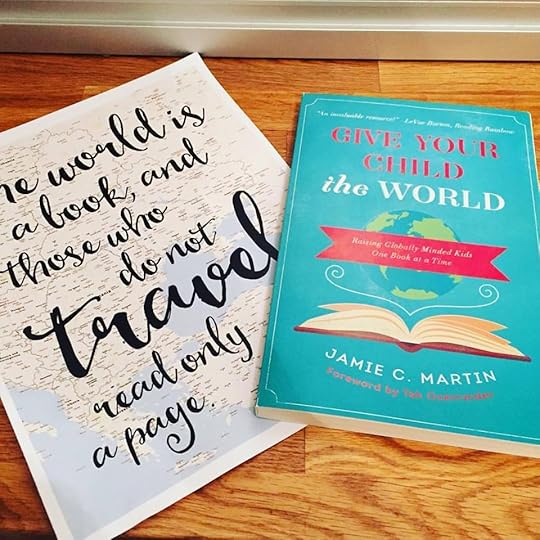 he world is
a book, and
those who
do not
travel
read only
a page.
"An invaluable resource!" -LeVar Burton, Reading Rainbow
GIVE YOUR
CHILD
the WORLD
Raising Globally Minded Kids
One Book at a Time
JAMIE C. MARTIN
Foreword by Tsh Oxenreider